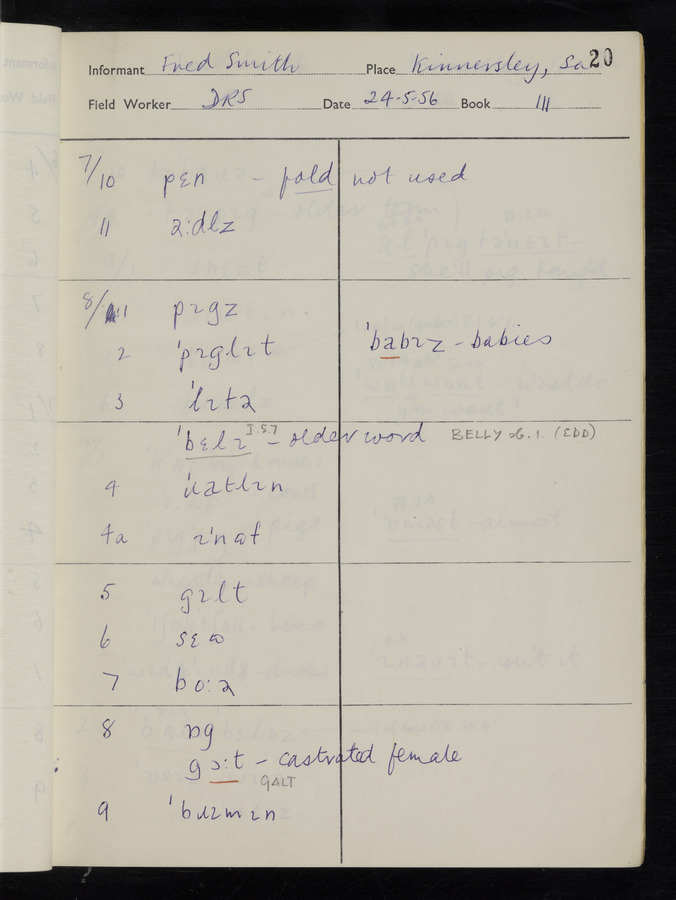 Informant Fred Smith Place Kinnersley, Sa 20
Field Worker DRS Date 24-5-56 Book III
7/10 pɛn – fold not used
11 ə:dlz
8/1 pɪgz
2 'pɪglɪt 'babɪz – babies
3 'lɪtə
'bɛlɪ I.8.7 – older word BELLY sb. 1. (EDD)
4
4a
5 gɪlt
6 sɛʊ
7 bo:ə
8 ɒg
gɔ:t – castrated female
GALT
9